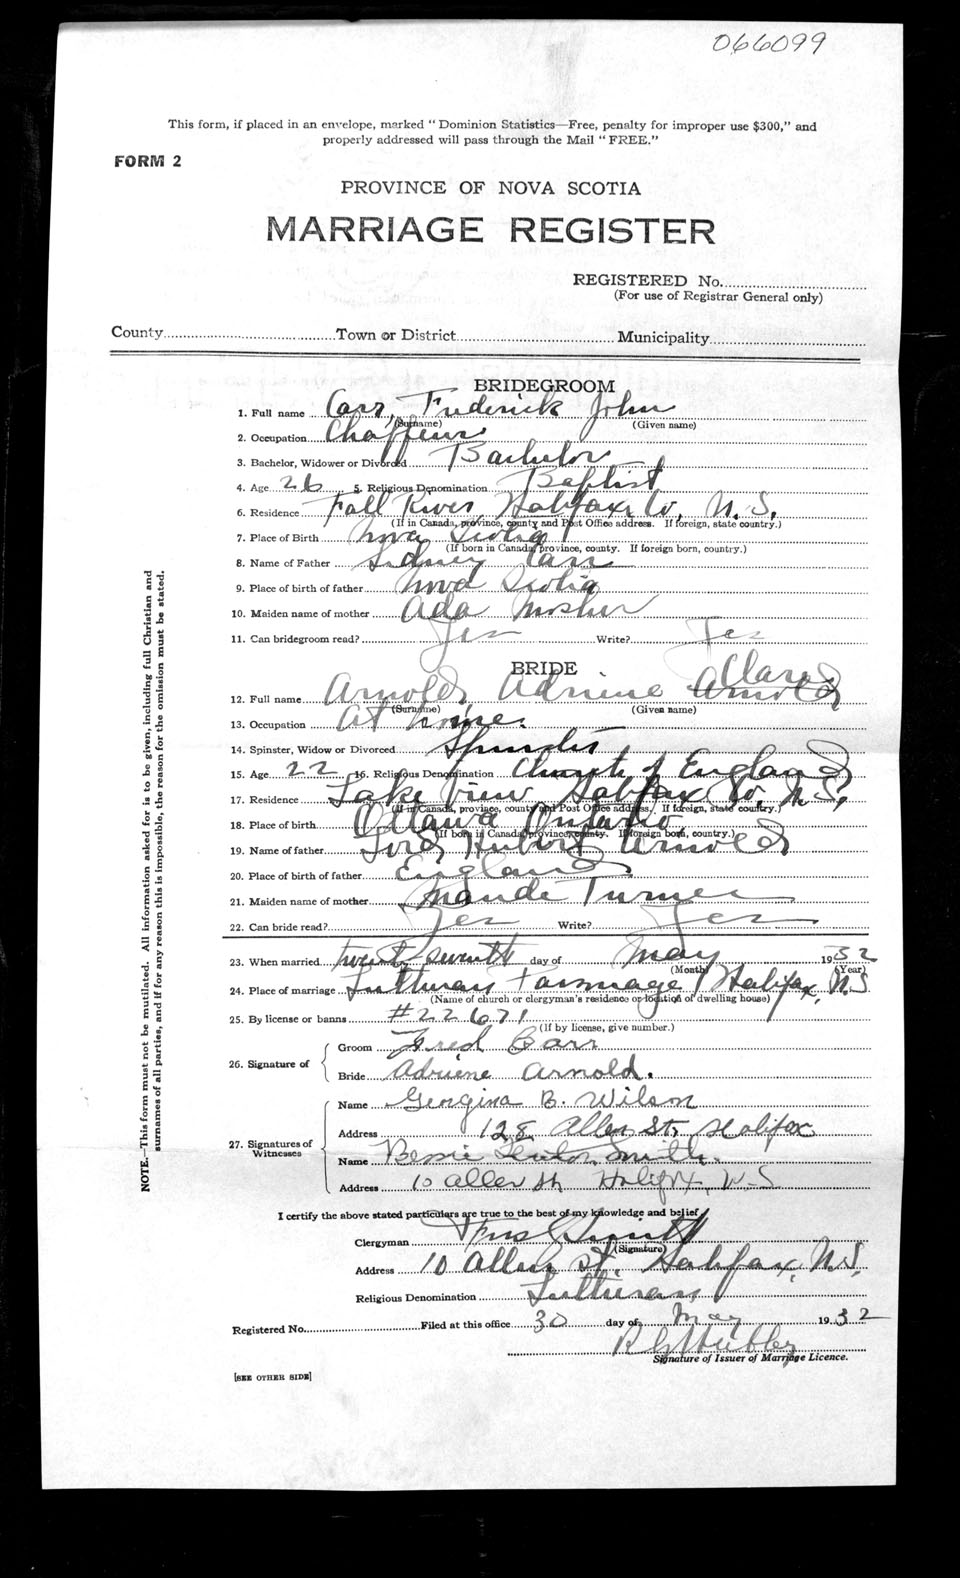 066099
This form, if placed in an envelope, marked "Dominion Statistics—Free, penalty for improper use $300," and
properly addressed will pass through the Mail "FREE."
FORM 2
PROVINCE OF NOVA SCOTIA
MARRIAGE REGISTER
REGISTERED No.
(For use of Registrar General only)
County Town or District Municipality
BRIDEGROOM
1. Full name Carr, Frederick John
(Surname) (Given name)
2. Occupation Chaffeur
3. Bachelor, Widower or Divorced Bachelor
4. Age 26 5. Religious Denomination Baptist
6. Residence Fall River, Halifax Co, N.S.
(If in Canada, province, county and Post Office address. If foreign, state country.)
7. Place of Birth Nova Scotia
(If born in Canada, province, county. If foreign born, country.)
8. Name of Father Sidney Carr
9. Place of birth of father Nova Scotia
10. Maiden name of mother Ada Mosher
11. Can bridegroom read? Yes Write? Yes
BRIDE
Clara
12. Full name Arnold, Adriene Arnold
(Surname) (Given name)
13. Occupation At home.
14. Spinster, Widow or Divorced Spinster
15. Age 22 16. Religious Denomination Church of England
17. Residence Lake View, Halifax Co, N.S.
(If in Canada, province, county and Post Office address. If foreign, state country.)
18. Place of birth Ottawa Ontario
(If born in Canada, province, county. If foreign born, country.)
19. Name of father Hubert Arnold
20. Place of birth of father England
21. Maiden name of mother Maude Turner
22. Can bride read? Yes Write? Yes
23. When married twenty seventh day of May 1932
(Month) (Year)
24. Place of marriage Lutheran Parsonage Halifax, N.S.
(Name of church or clergyman's residence or location of dwelling house)
25. By license or banns #22671
(If by license, give number.)
26. Signature of
Groom Fred Carr
Bride Adriene Arnold.
27. Signatures of Witnesses
Name Georgina B. Wilson
Address 128 Allen St, Halifax
Name Bessie Smith.
Address 10 Allen St, Halifax, N.S
I certify the above stated particulars are true to the best of my knowledge and belief
Clergyman
(Signature)
Address 10 Allen St. Halifax, N.S.
Religious Denomination Lutheran
Registered No. Filed at this office 30 day of May 1932
Signature of Issuer of Marriage Licence.
[SEE OTHER SIDE]
NOTE.—This form must not be mutilated. All information asked for is to be given, including full Christian and
surnames of all parties, and if for any reason this is impossible, the reason for the omission must be stated.